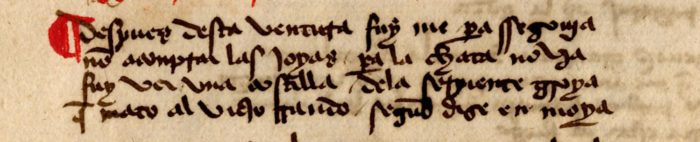 Despues desta ventura fuy me pa ssegouja
nō acomprar las joyas pa la chata novja
fuy ver vna costilla dela serpiente groya
q̄ mato al viejo rrando segūd dise en moya